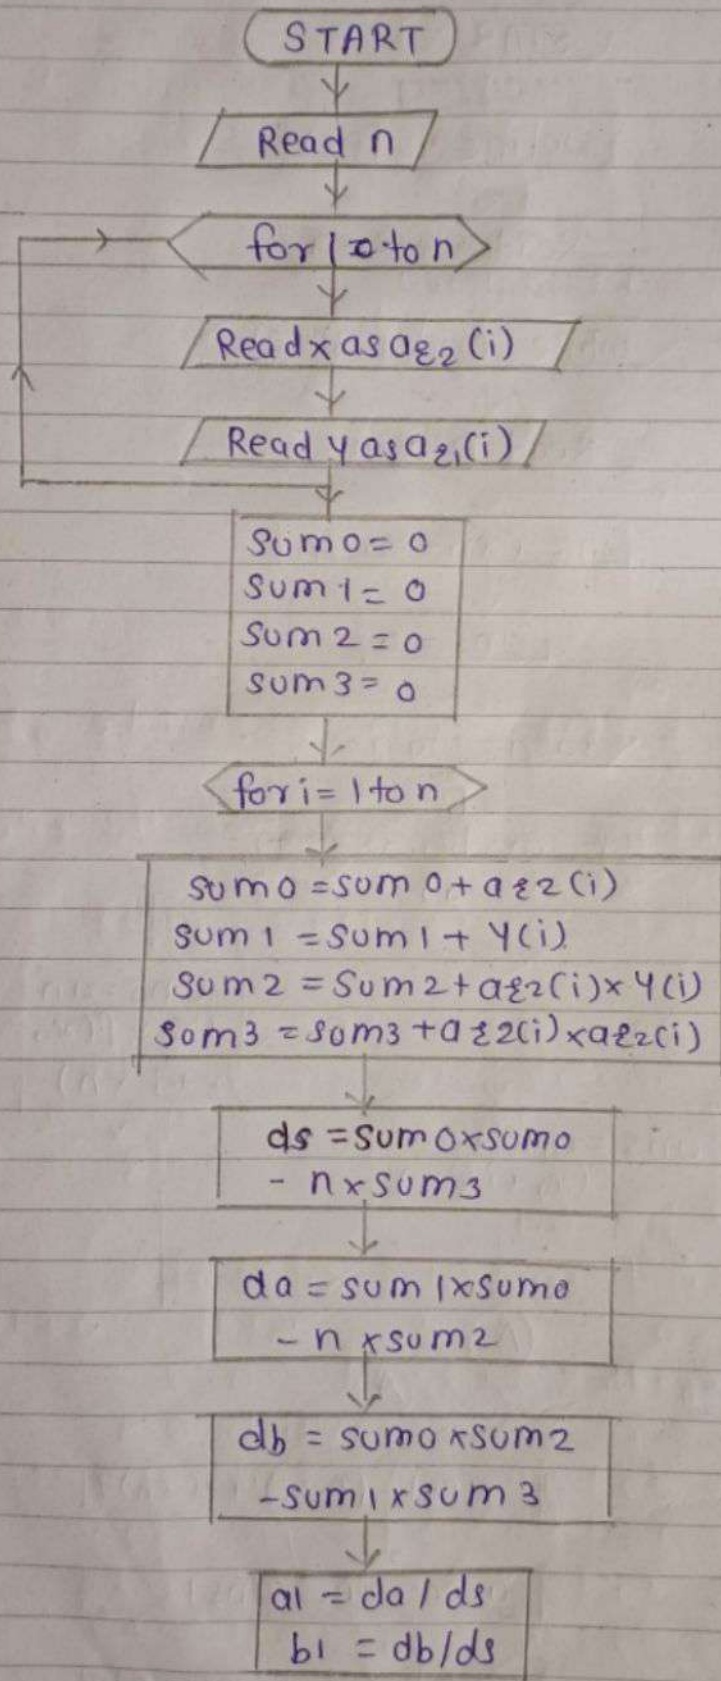 START
Read n
for 1 to n
Read x as a z 2 (i)
Read y as a z 1 (i)
sum 0 = 0
sum 1 = 0
sum 2 = 0
sum 3 = 0
for i = 1 to n
sum 0 = sum 0 + a z 2 (i)
sum 1 = sum 1 + y(i)
sum 2 = sum 2 + a z 2 (i) x y(i)
som 3 = som 3 + a z 2 (i) x a z 2 (i)
ds = sum 0 x sum 0
- n x sum 3
da = sum 1 x sum 0
- n x sum 2
db = sum 0 x sum 2
- sum 1 x sum 3
a1 = da / ds
b1 = db / ds